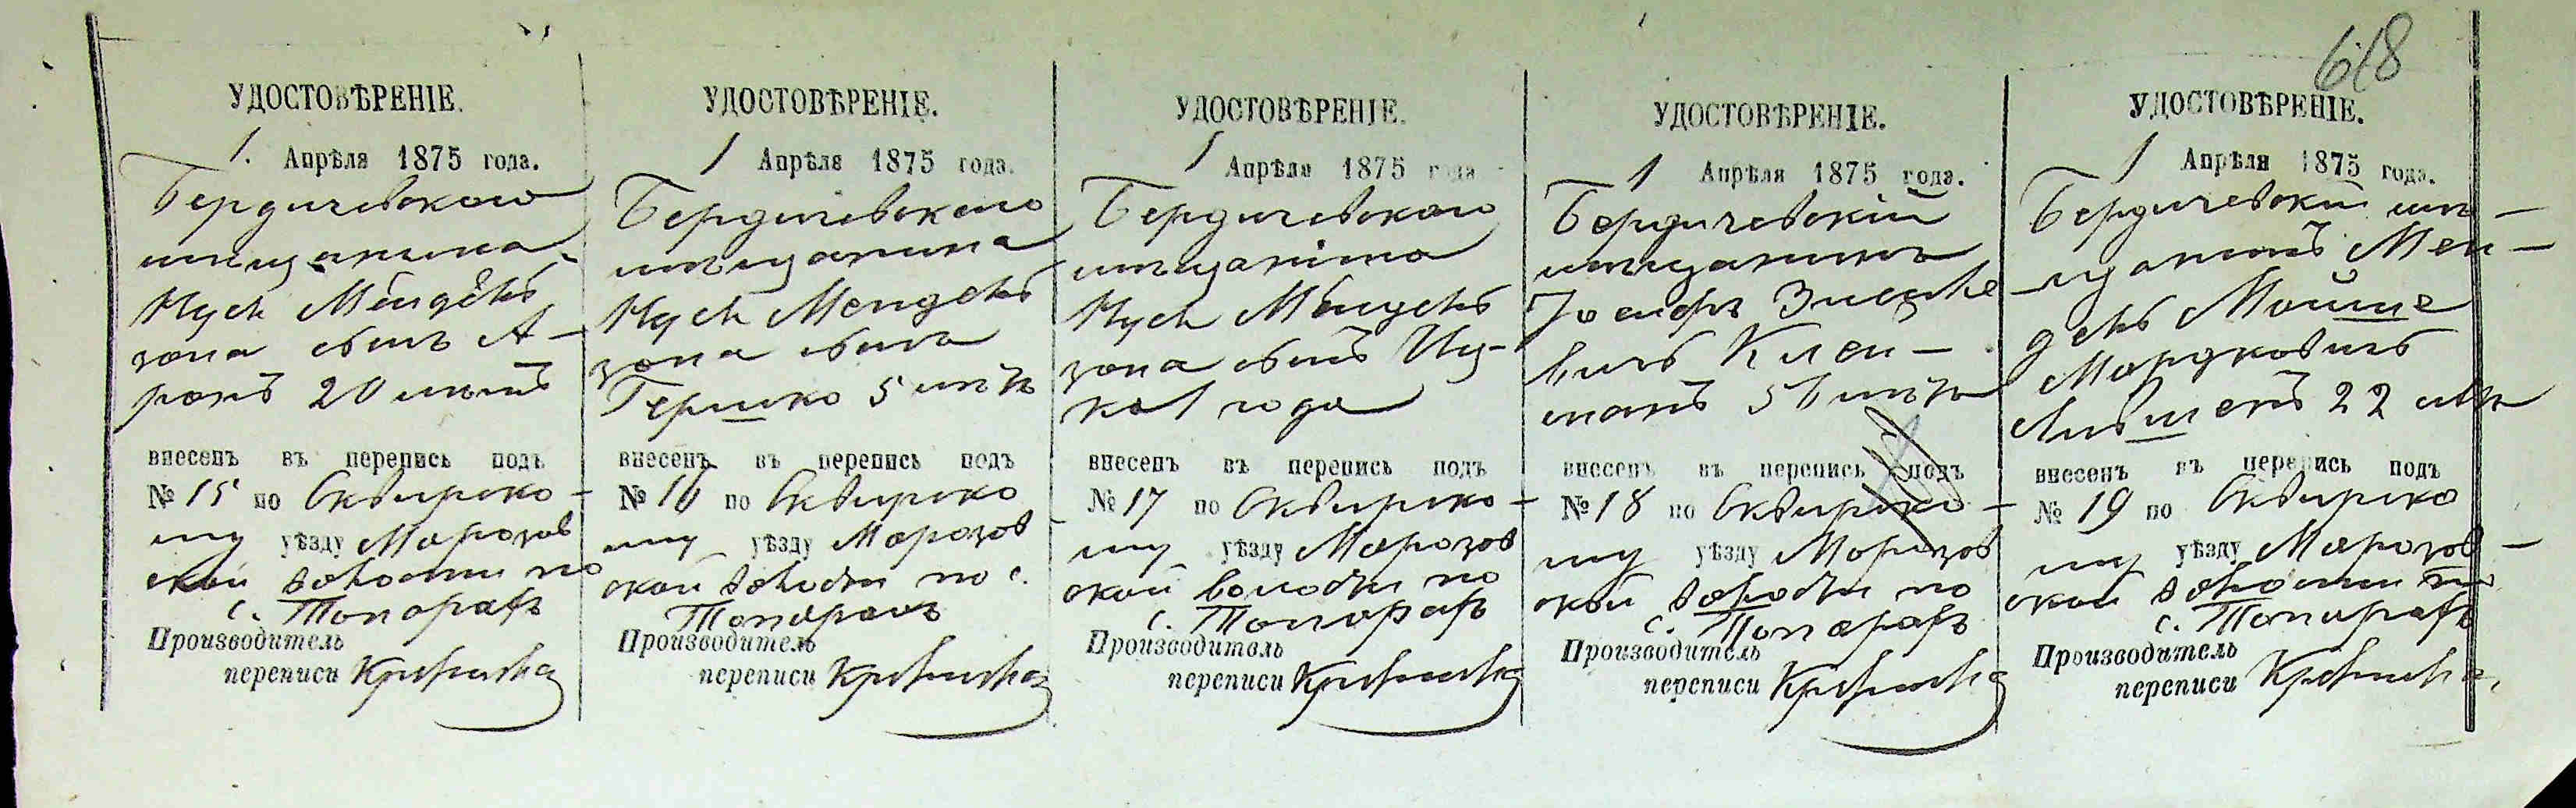 618
УДОСТОВѢРЕНІЕ.
1. Апрѣля 1875 года.
Бердичевскаго
мѣщанина
Нусн Мендель
зона сынъ А-
ронъ 20 лѣтъ
внесенъ въ перепись подъ
№ 15 по Сквирско-
му уѣзду Морозов
ской волости по
с. Топорахъ
Производитель
переписи
УДОСТОВѢРЕНІЕ.
1 Апрѣля 1875 года.
Бердичевскаго
мѣщанина
Нусн Мендель
зона сына
Гершко 5 лѣтъ
внесенъ въ перепись подъ
№ 16 по Сквирско
му уѣзду Морозов
ской волости по с.
Топорахъ
Производитель
переписи
УДОСТОВѢРЕНІЕ.
1 Апрѣля 1875 года
Бердичевскаго
мѣщанина
Нусн Мендель
зона сынъ Иц-
ко 1 года
внесенъ въ перепись подъ
№ 17 по Сквирско-
му уѣзду Морозов
ской волости по
с. Топорахъ
Производитель
переписи
УДОСТОВѢРЕНІЕ.
1 Апрѣля 1875 года.
Бердичевскій
мѣщанинъ
Іосифъ
вичъ Клей-
манъ 56 лѣтъ
внесенъ въ перепись подъ
№ 18 по Сквирско-
му уѣзду Морозов
ской волости по
с. Топорахъ
Производитель
переписи
УДОСТОВѢРЕНІЕ.
1 Апрѣля 1875 года.
Бердичевскій мѣ-
щанинъ Мен-
дель Мойше
Мордковичъ
22 лѣтъ
внесенъ въ перепись подъ
№ 19 по Сквирско
му уѣзду Морозов-
ской волости по
с. Топорахъ
Производитель
переписи